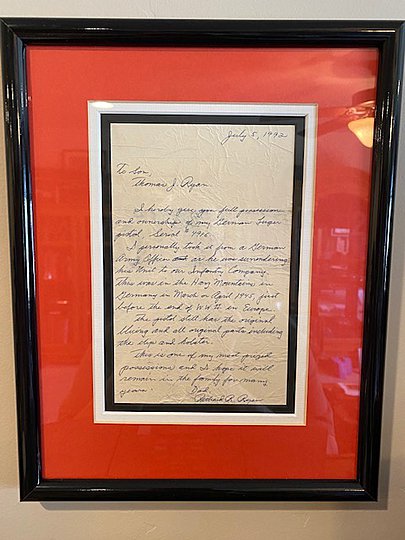 July 5, 1992
To Son,
Thomas J. Ryan
I hereby give you full possession
and ownership of my German Luger
pistol Serial # 4910.
I personally took it from a German
Army Officer as he was surrendering
his Unit to our Infantry Company.
This was in the Harz Mountains in
Germany in March or April 1945 just
before the end of WW II in Europe.
The pistol still has the original
bluing and all original parts including
the clip and holster.
This is one of my most prized
possessions and I hope it will
remain in the family for many
years.
Dad
R. Ryan